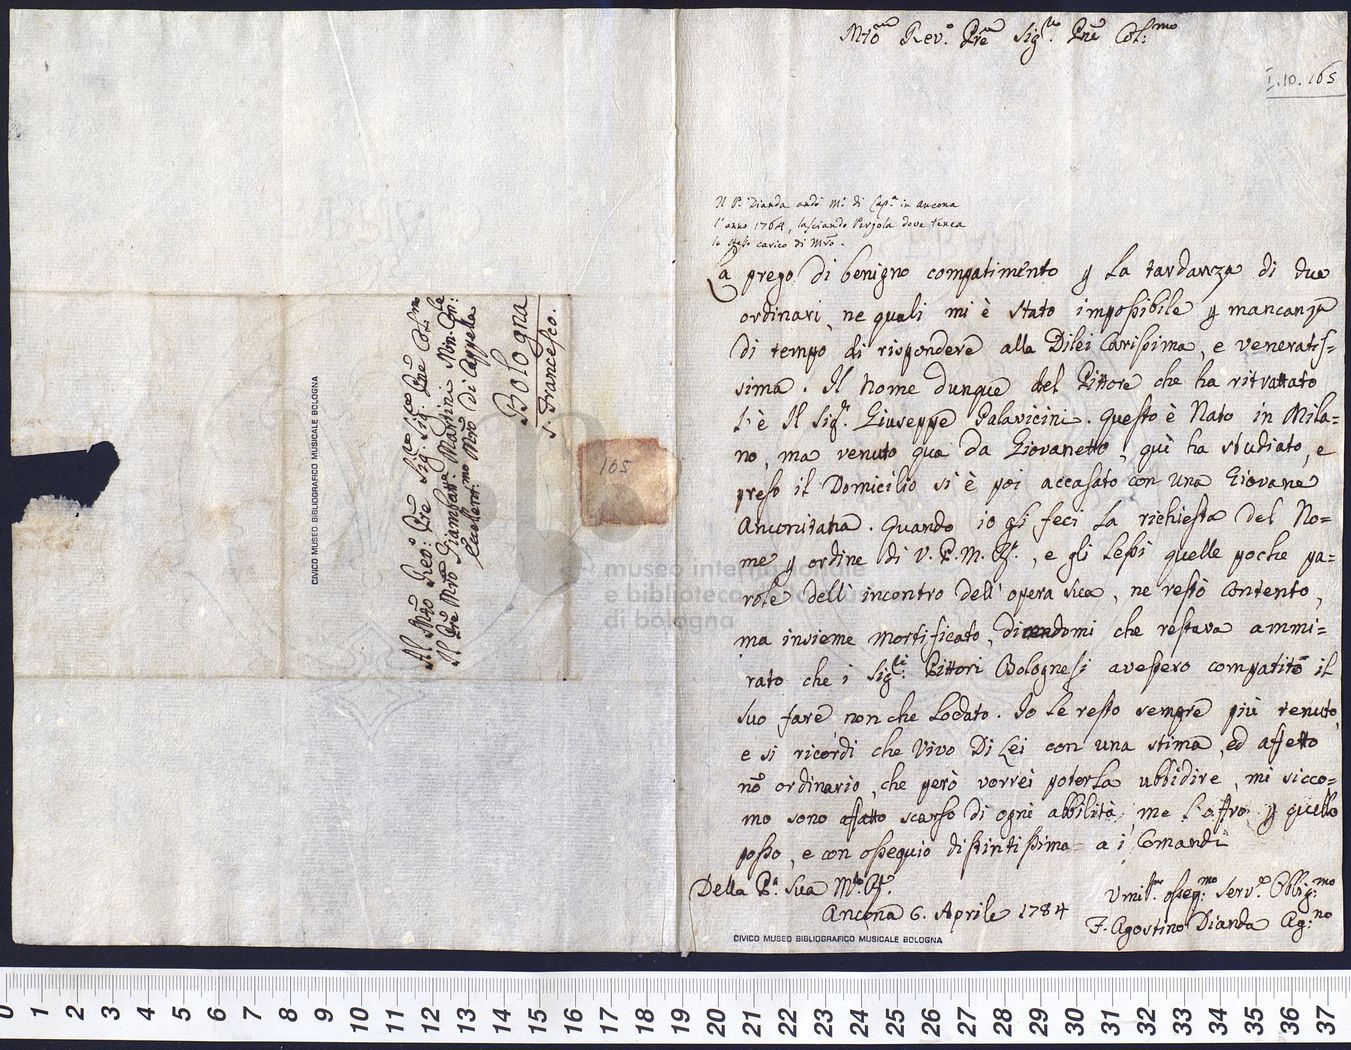 Al Mto Rev: Pre Sig: Sig: Pne Col:mo
Il Pre Mro Giambatta: Martini Min: Con:le
Eccellent:mo Mro Di Cappella
Bologna
S. Francesco.
CIVICO MUSEO BIBLIOGRAFICO MUSICALE BOLOGNA
165
museo internazionale
e biblioteca della musica
di bologna
Mto Rev.o Pre Sig.re Pne Col:mo
I.10.165
Il P. Dianda andò M.o di Cap.a in Ancona
l'anno 1764, lasciando Pergola dove tenea
lo stesso carico di Mro.
La prego di benigno compatimento p La tardanza di due
ordinari, ne quali mi è stato impossibile p mancanza
di tempo di rispondere alla Dilei Carissima, e veneratis=
sima. Il Nome dunque del Pittore che ha ritrattato
l'è Il Sig.r Giuseppe Palavicini. Questo è Nato in Mila=
no, ma venuto qua da Giovanetto, quì ha studiato, e
preso il Domicilio si è poi accasato con una Giovane
Anconitana. Quando io gli feci La richiesta del No=
me p ordine di V. P. M. R., e gli Lessi quelle poche pa=
role dell'incontro dell'opera sua, ne restò contento,
ma insieme mortificato, dicendomi che restava ammi=
rato che i Sig:ri Pittori Bolognesi avessero compatito il
suo fare non che Lodato. Io Le resto sempre più tenuto,
e si ricordi che Vivo Di Lei con una stima, ed affetto
nò ordinario, che però vorrei poterla ubbidire, mi sicco=
mo sono affatto scarso di ogni abbilità, me l'offro p quello
posso, e con ossequio distintissima= a i Comandi
Della P.a Sua M.to R.
Ancona 6. Aprile 1784
Umil.mo osseq:mo Serv.e Obbig:mo
F. Agostino Dianda Ag:no
CIVICO MUSEO BIBLIOGRAFICO MUSICALE BOLOGNA
0 1 2 3 4 5 6 7 8 9 10 11 12 13 14 15 16 17 18 19 20 21 22 23 24 25 26 27 28 29 30 31 32 33 34 35 36 37